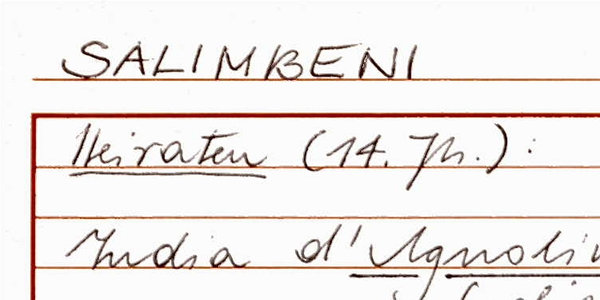 SALIMBENI
Heiraten (14. Jh.):
d'Agnoli